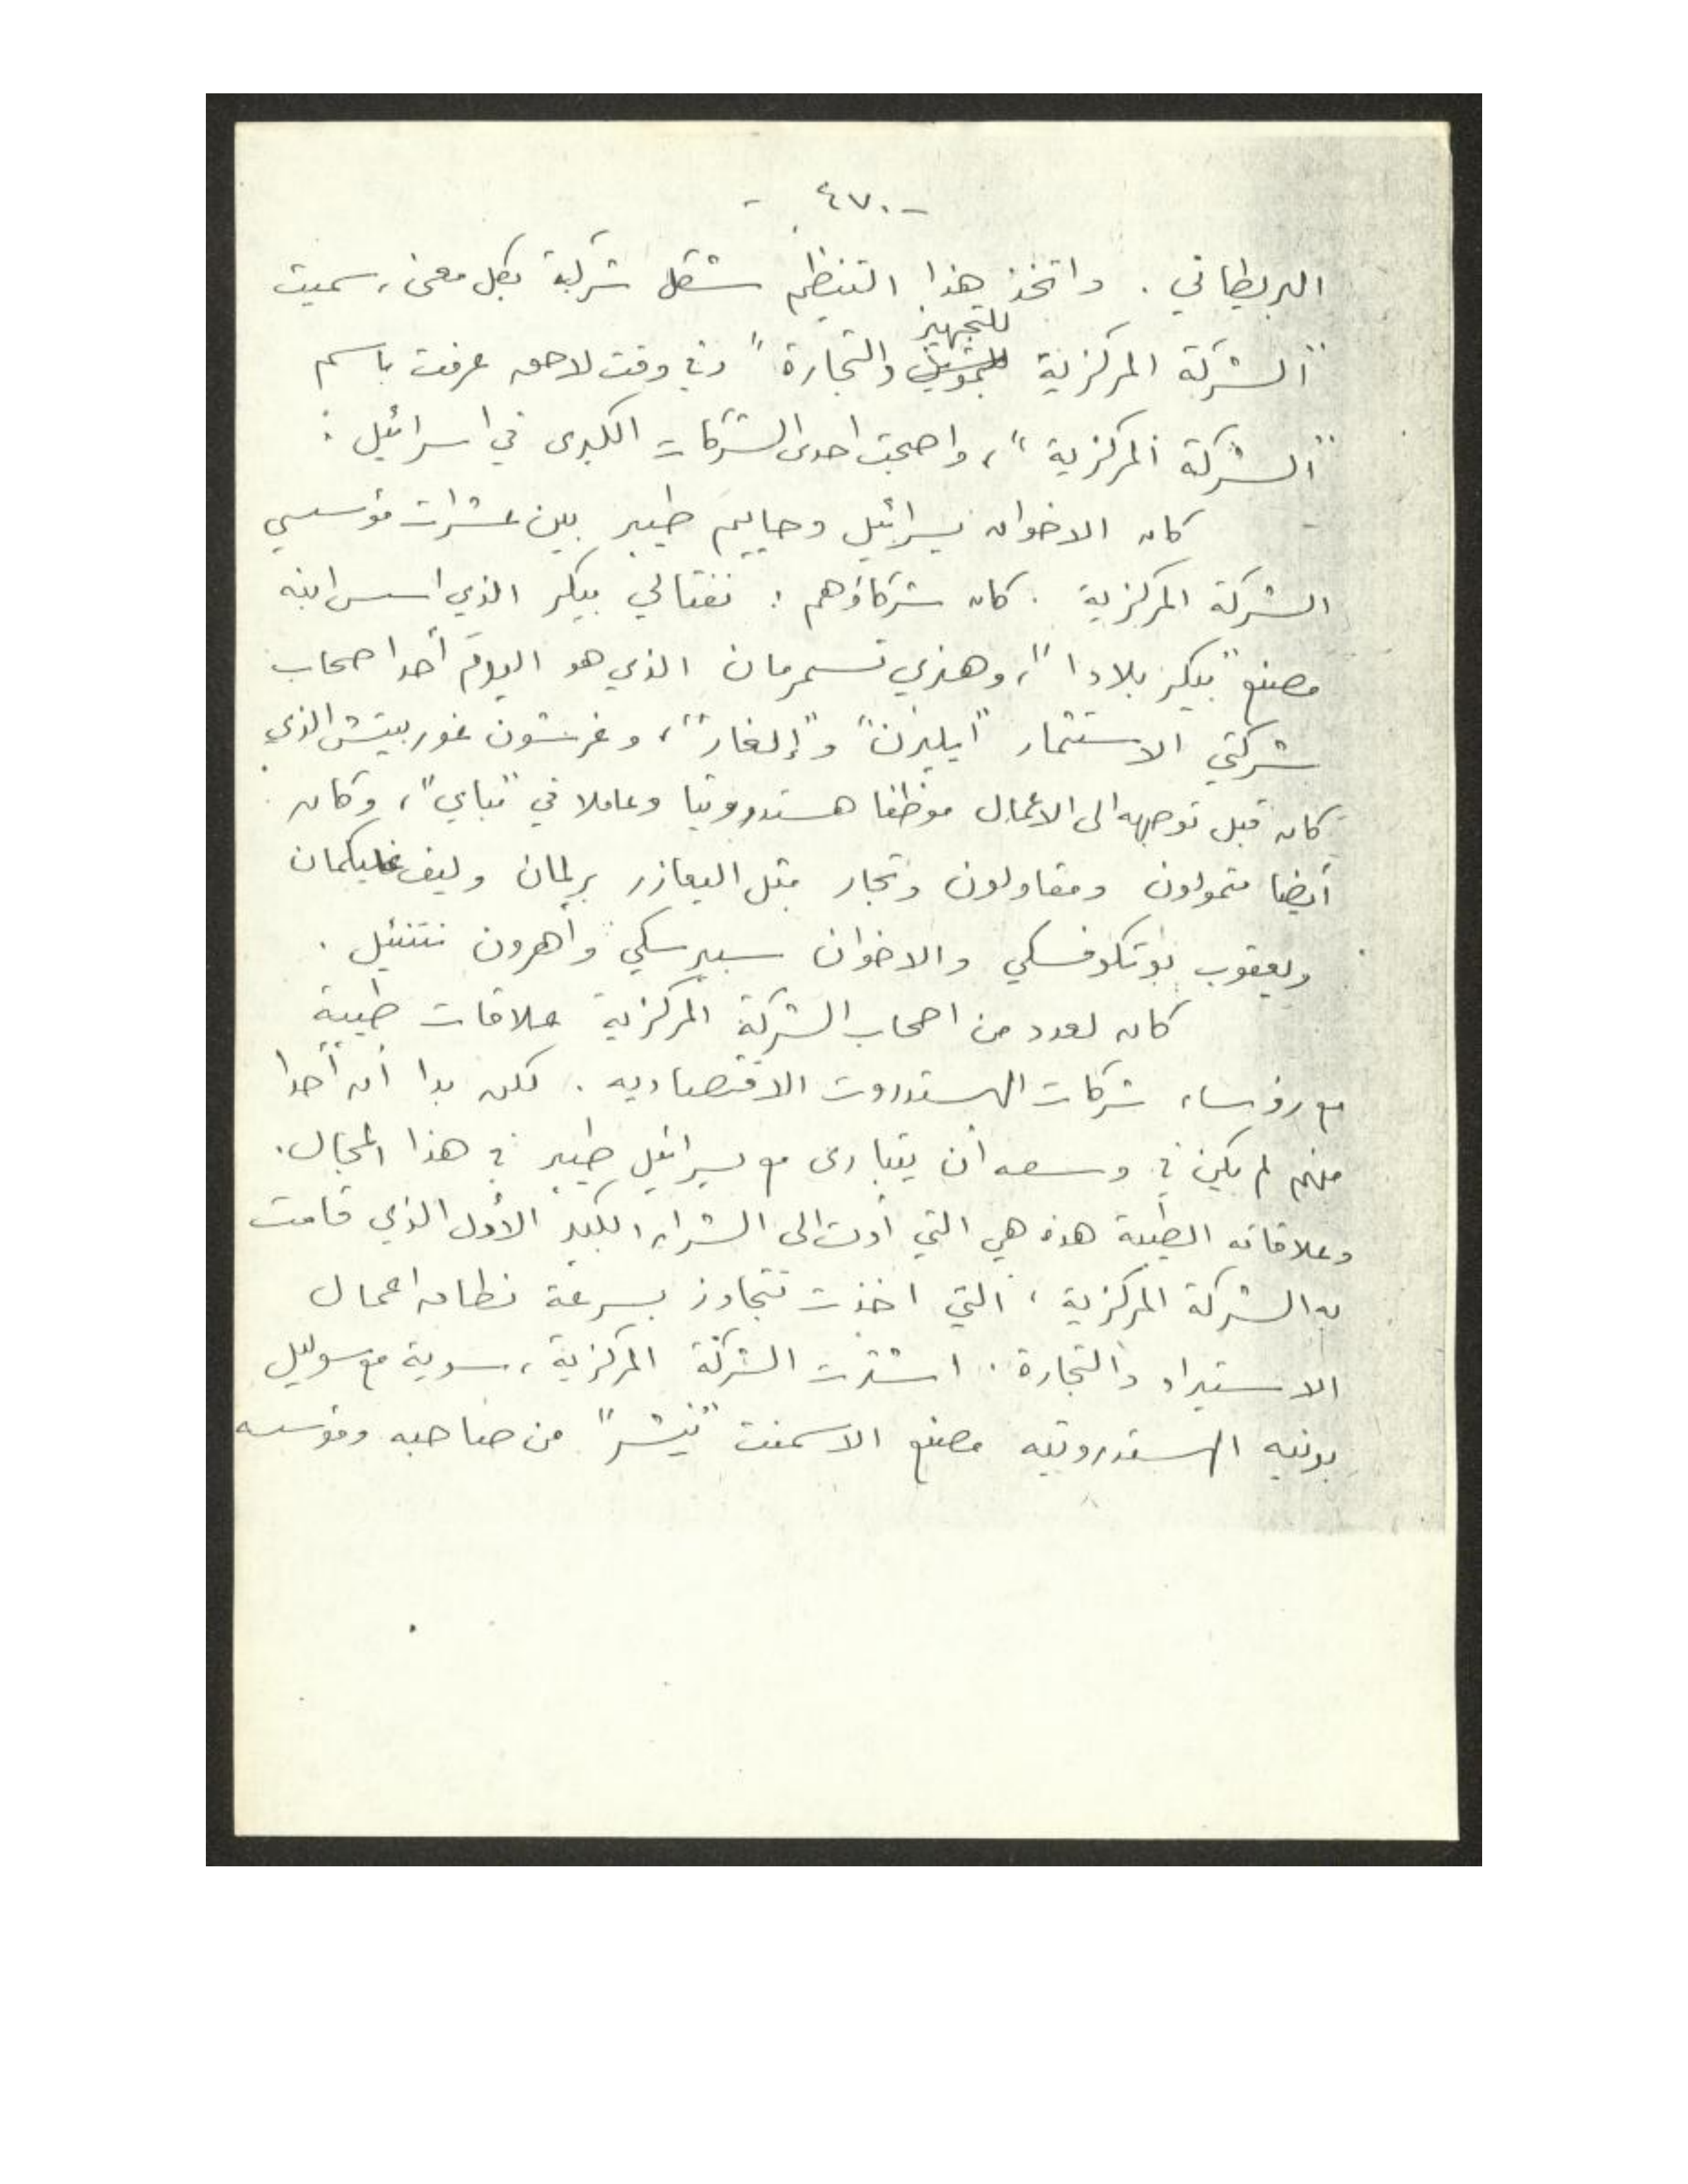 - ٤٧٠ -
البريطاني . واتخذ هذا التنظيم شكل شركة بكل معنى، سميت
للتجهيز
"الشركة المركزية للتمويل والتجارة" وفي وقت لاحق عرفت باسم
"الشركة المركزية"، واصبحت احدى الشركات الكبرى في اسرائيل :
كان الاخوان يسرائيل وحاييم طيبر بين عشرات مؤسسي
الشركة المركزية . كان شركاؤهم : نفتالي بيكر الذي اسس ابنه
مصنع "بيكر بلادا"، وهنري تسمرمان الذي هو اليوم أحد اصحاب
شركتي الاستثمار "ايليرن" و"إلغار"، وغرشون غوربيتش الذي
كان قبل توجهه الى الاعمال موظفا هستدروتيا وعاملا في "مباي"، وكان
أيضا متمولون ومقاولون وتجار مثل اليعازر برلمان وليف غليكمان
ويعقوب بوتكوفسكي والاخوان سبيرسكي وأهرون نتنئيل .
كان لعدد من اصحاب الشركة المركزية علاقات طيبة
مع رؤساء شركات الهستدروت الاقتصادية . لكن بدا أن أحدا
منهم لم يكن في وسعه أن يتبارى مع يسرائيل طيبر في هذا المجال.
وعلاقاته الطيبة هذه هي التي أدت الى الشراء الكبير الأول الذي قامت
به الشركة المركزية، التي اخذت تتجاوز بسرعة نطاق اعمال
الاستيراد والتجارة . اشترت الشركة المركزية، سوية مع سوليل
بونيه الهستدروتيه مصنع الاسمنت "نيشر" من صاحبه ومؤسسه